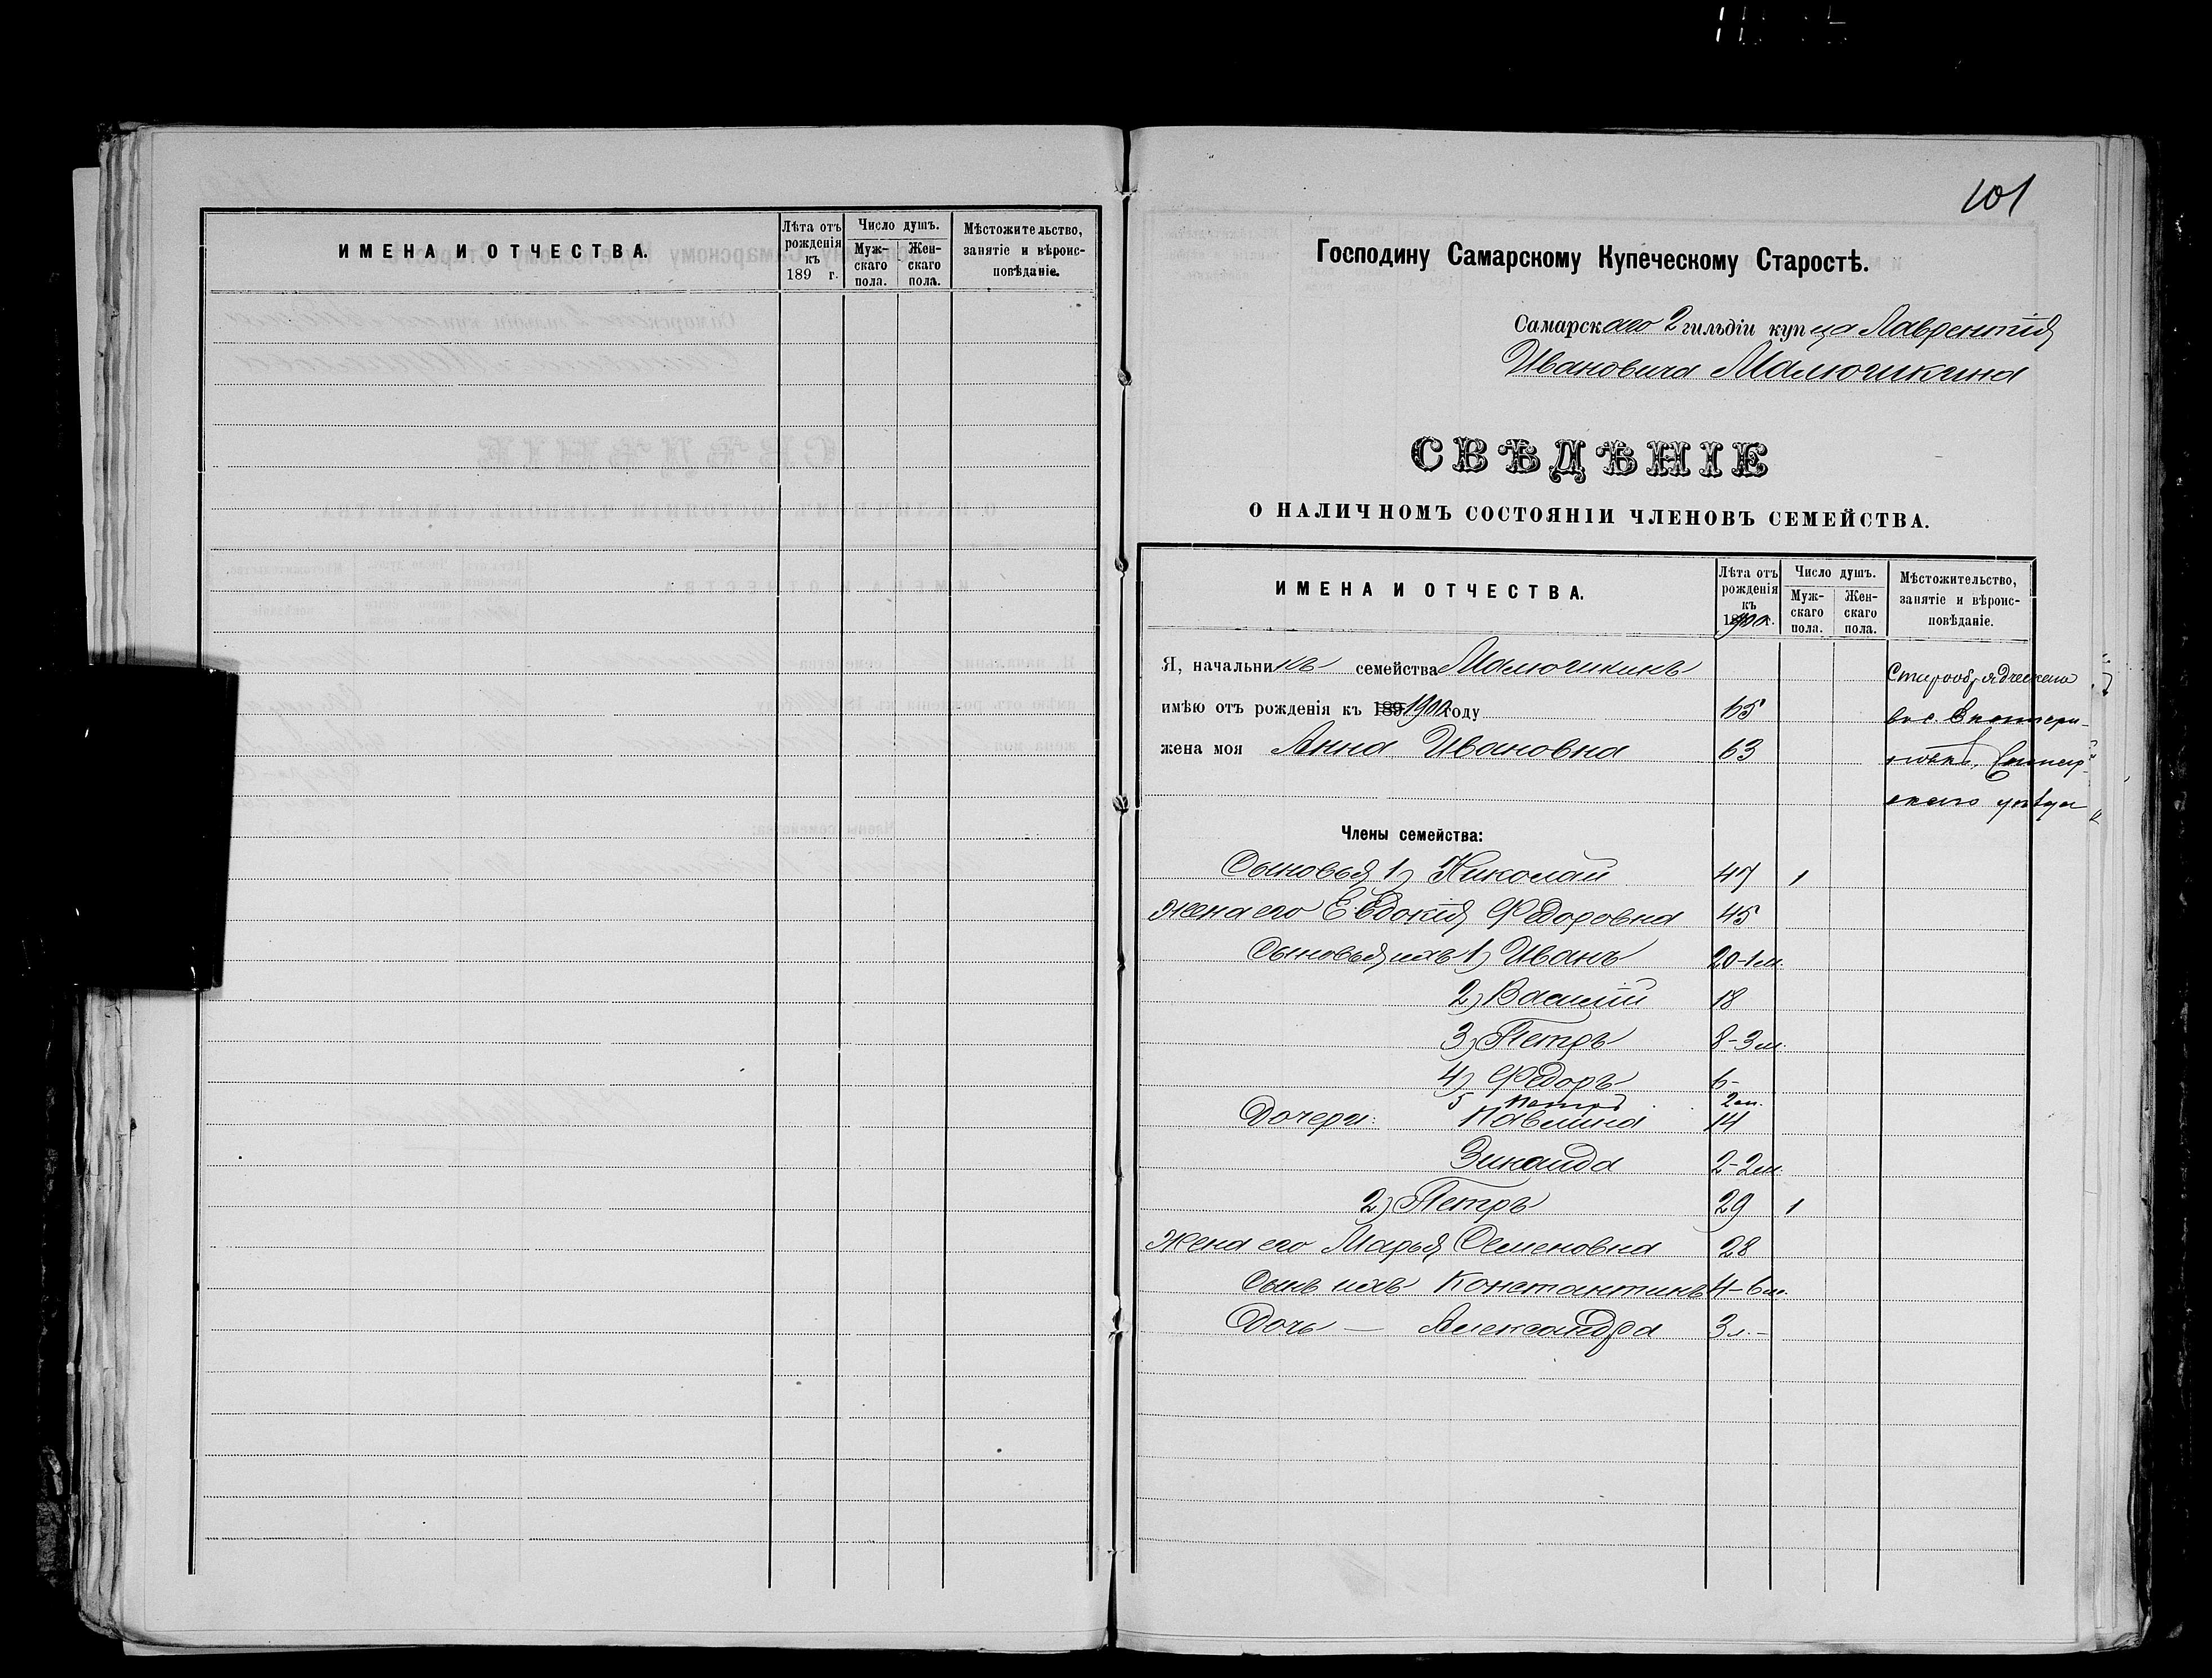 ИМЕНА И ОТЧЕСТВА.
Лѣта отъ рожденія къ 189 г.
Число душъ.
Муж-скаго пола.
Жен-скаго пола.
Мѣстожительство, занятіе и вѣроис-повѣданіе.
101
Господину Самарскому Купеческому Старостѣ.
Самарскаго 2 гильдіи купца Лаврентія
Ивановича Малюшкина
СВѢДѢНІЕ
О НАЛИЧНОМЪ СОСТОЯНІИ ЧЛЕНОВЪ СЕМЕЙСТВА.
ИМЕНА И ОТЧЕСТВА.
Лѣта отъ рожденія къ 1900 г.
Число душъ.
Муж-скаго пола.
Жен-скаго пола.
Мѣстожительство, занятіе и вѣроис-повѣданіе.
Я, начальникъ семейства Малюшкинъ
имѣю отъ рожденія къ 189 1900 году 65
жена моя Анна Ивановна 63
Старообрядческаго
вѣ с. Екатери-
скаго уѣзда
Члены семейства:
Сыновья 1) Николай 47 1
Жена его Евдокія Федоровна 45
Сыновья ихъ 1) Иванъ 20-1 м.
2) Василій 18
3) Петръ 8-3 м.
4) Федоръ 6-
5 Петръ 2 м.
Дочери: Павлина 14
Зинаида 2-2 м.
2) Петръ 29 1
Жена его Марья Семеновна 28
Сынъ ихъ Константинъ 4-6 м.
Дочь — Александра 3 л. -